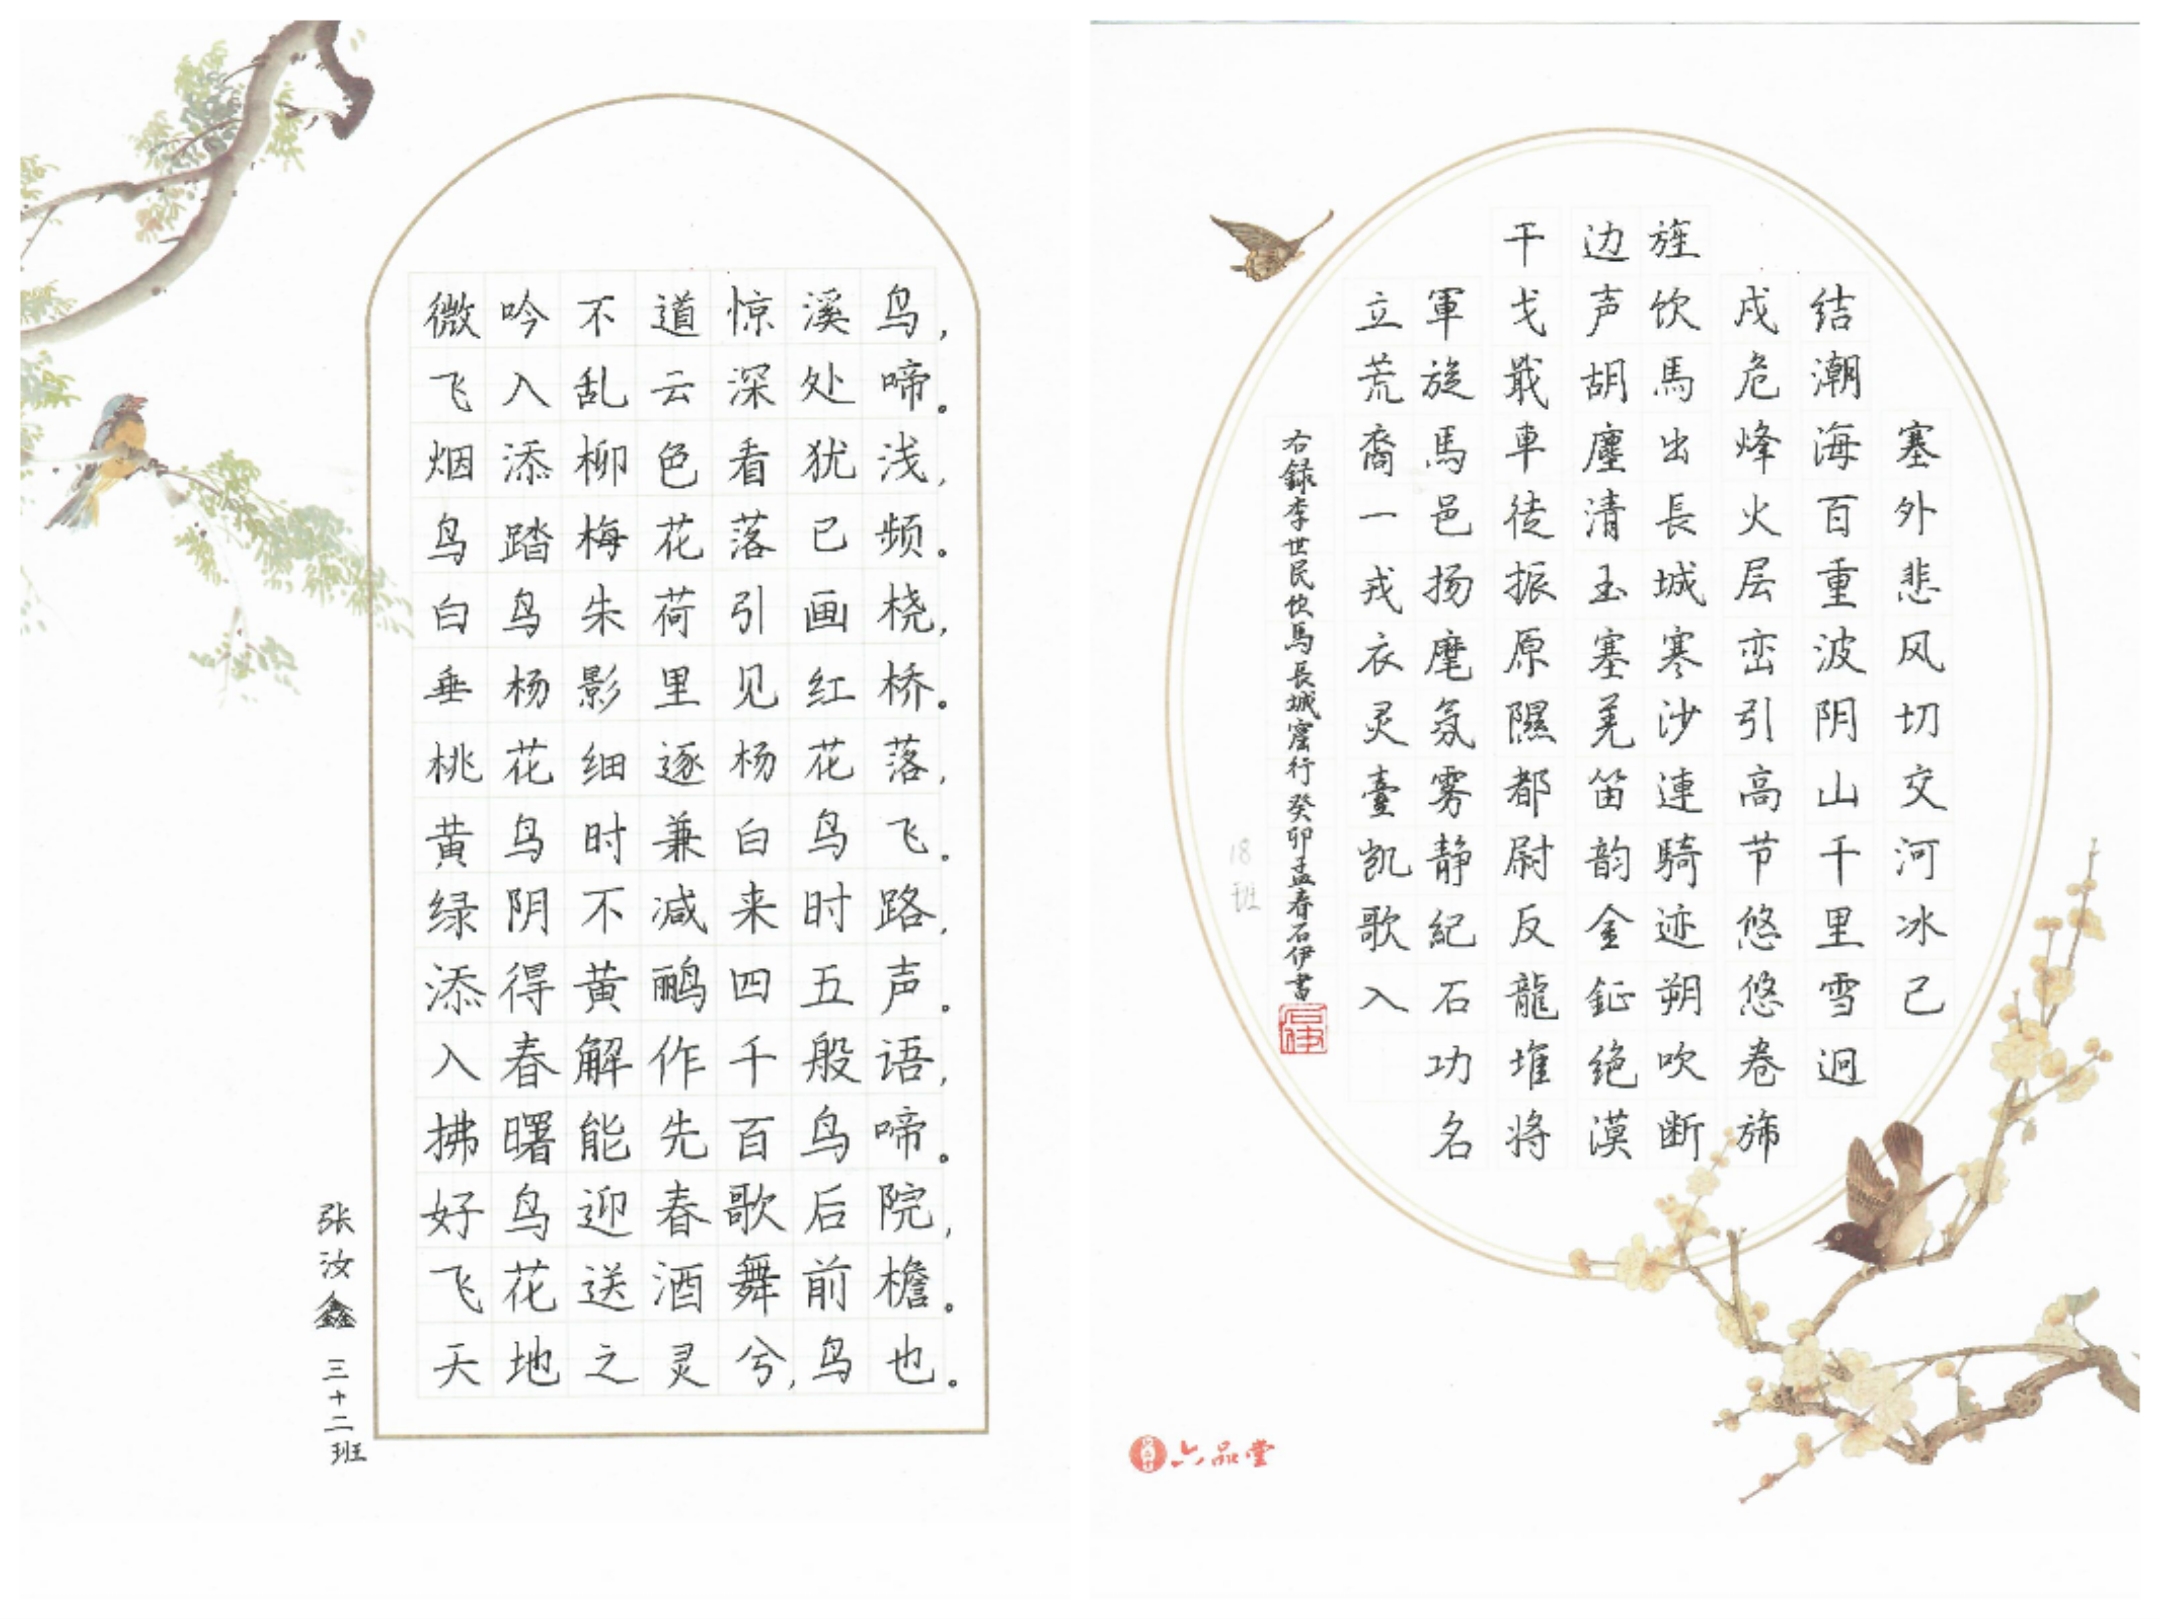 微吟不道惊溪鸟,
飞入乱云深处啼。
烟添柳色看犹浅,
鸟踏梅花落已频。
白鸟朱荷引画桡,
垂杨影里见红桥。
桃花细逐杨花落,
黄鸟时兼白鸟飞。
绿阴不减来时路,
添得黄鹂四五声。
入春解作千般语,
拂曙能先百鸟啼。
好鸟迎春歌后院,
飞花送酒舞前檐。
天地之灵兮,鸟也。
张汝鑫 三十二班
塞外悲风切交河冰已
结潮海百重波阴山千里雪迥
戍危烽火层峦引高节悠悠卷旆
旌饮馬出長城寒沙連騎迹朔吹断
边声胡塵清玉塞羌笛韵金鉦绝漠
干戈戢車徒振原隰都尉反龍堆将
軍旋馬邑扬麾氛雾静紀石功名
立荒裔一戎衣灵臺凯歌入
右録李世民饮馬長城窟行癸卯孟春石伊書
18班
六品堂